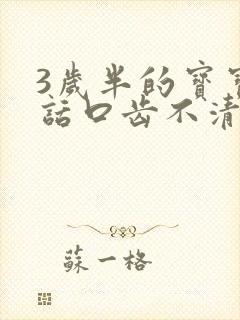 3歲半的寶寶
話口齒不清
蘇一格